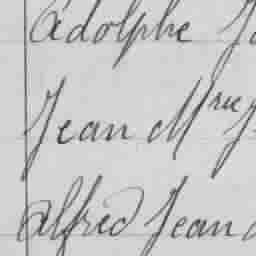 Adolphe
Jean Mrie
Alfred Jean